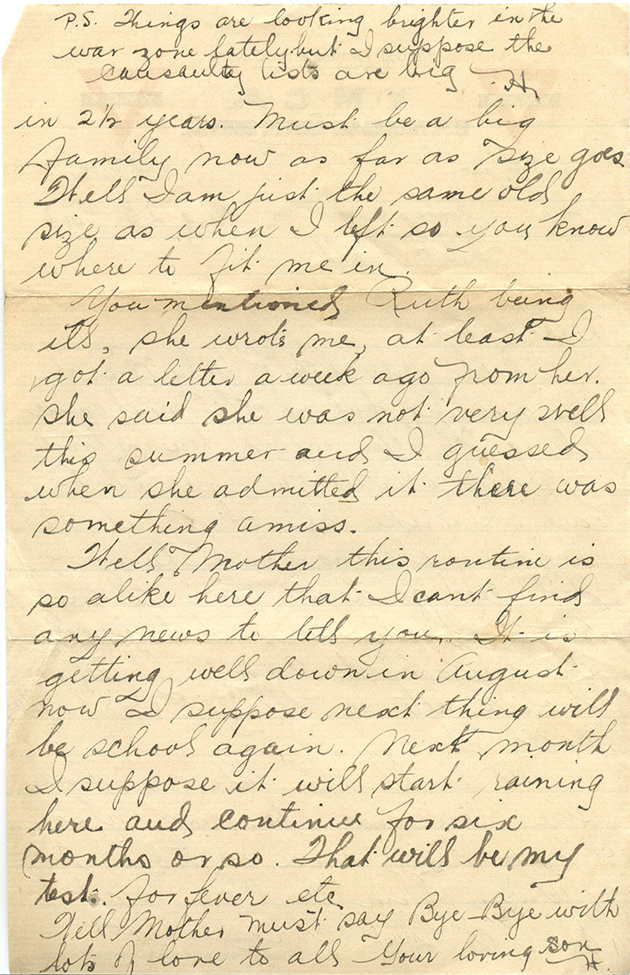 P.S. Things are looking brighter in the
war zone lately but I suppose the
causaulty lists are big H.
in 2 1/2 years. Must be a big
family now as far as size goes
Well I am just the same old
size as when I left so you know
where to fit me in.
You mentioned Ruth being
ill, she wrote me, at least I
got a letter a week ago from her.
She said she was not very well
this summer and I guessed
when she admitted it there was
something amiss.
Well Mother this routine is
so alike here that I cant find
any news to tell you. It is
getting well down in August
now I suppose next thing will
be school again. Next month
I suppose it will start raining
here and continue for six
months or so. That will be my
test. for fever etc
Well Mother must say Bye-Bye with
lots of love to all Your loving son
H.